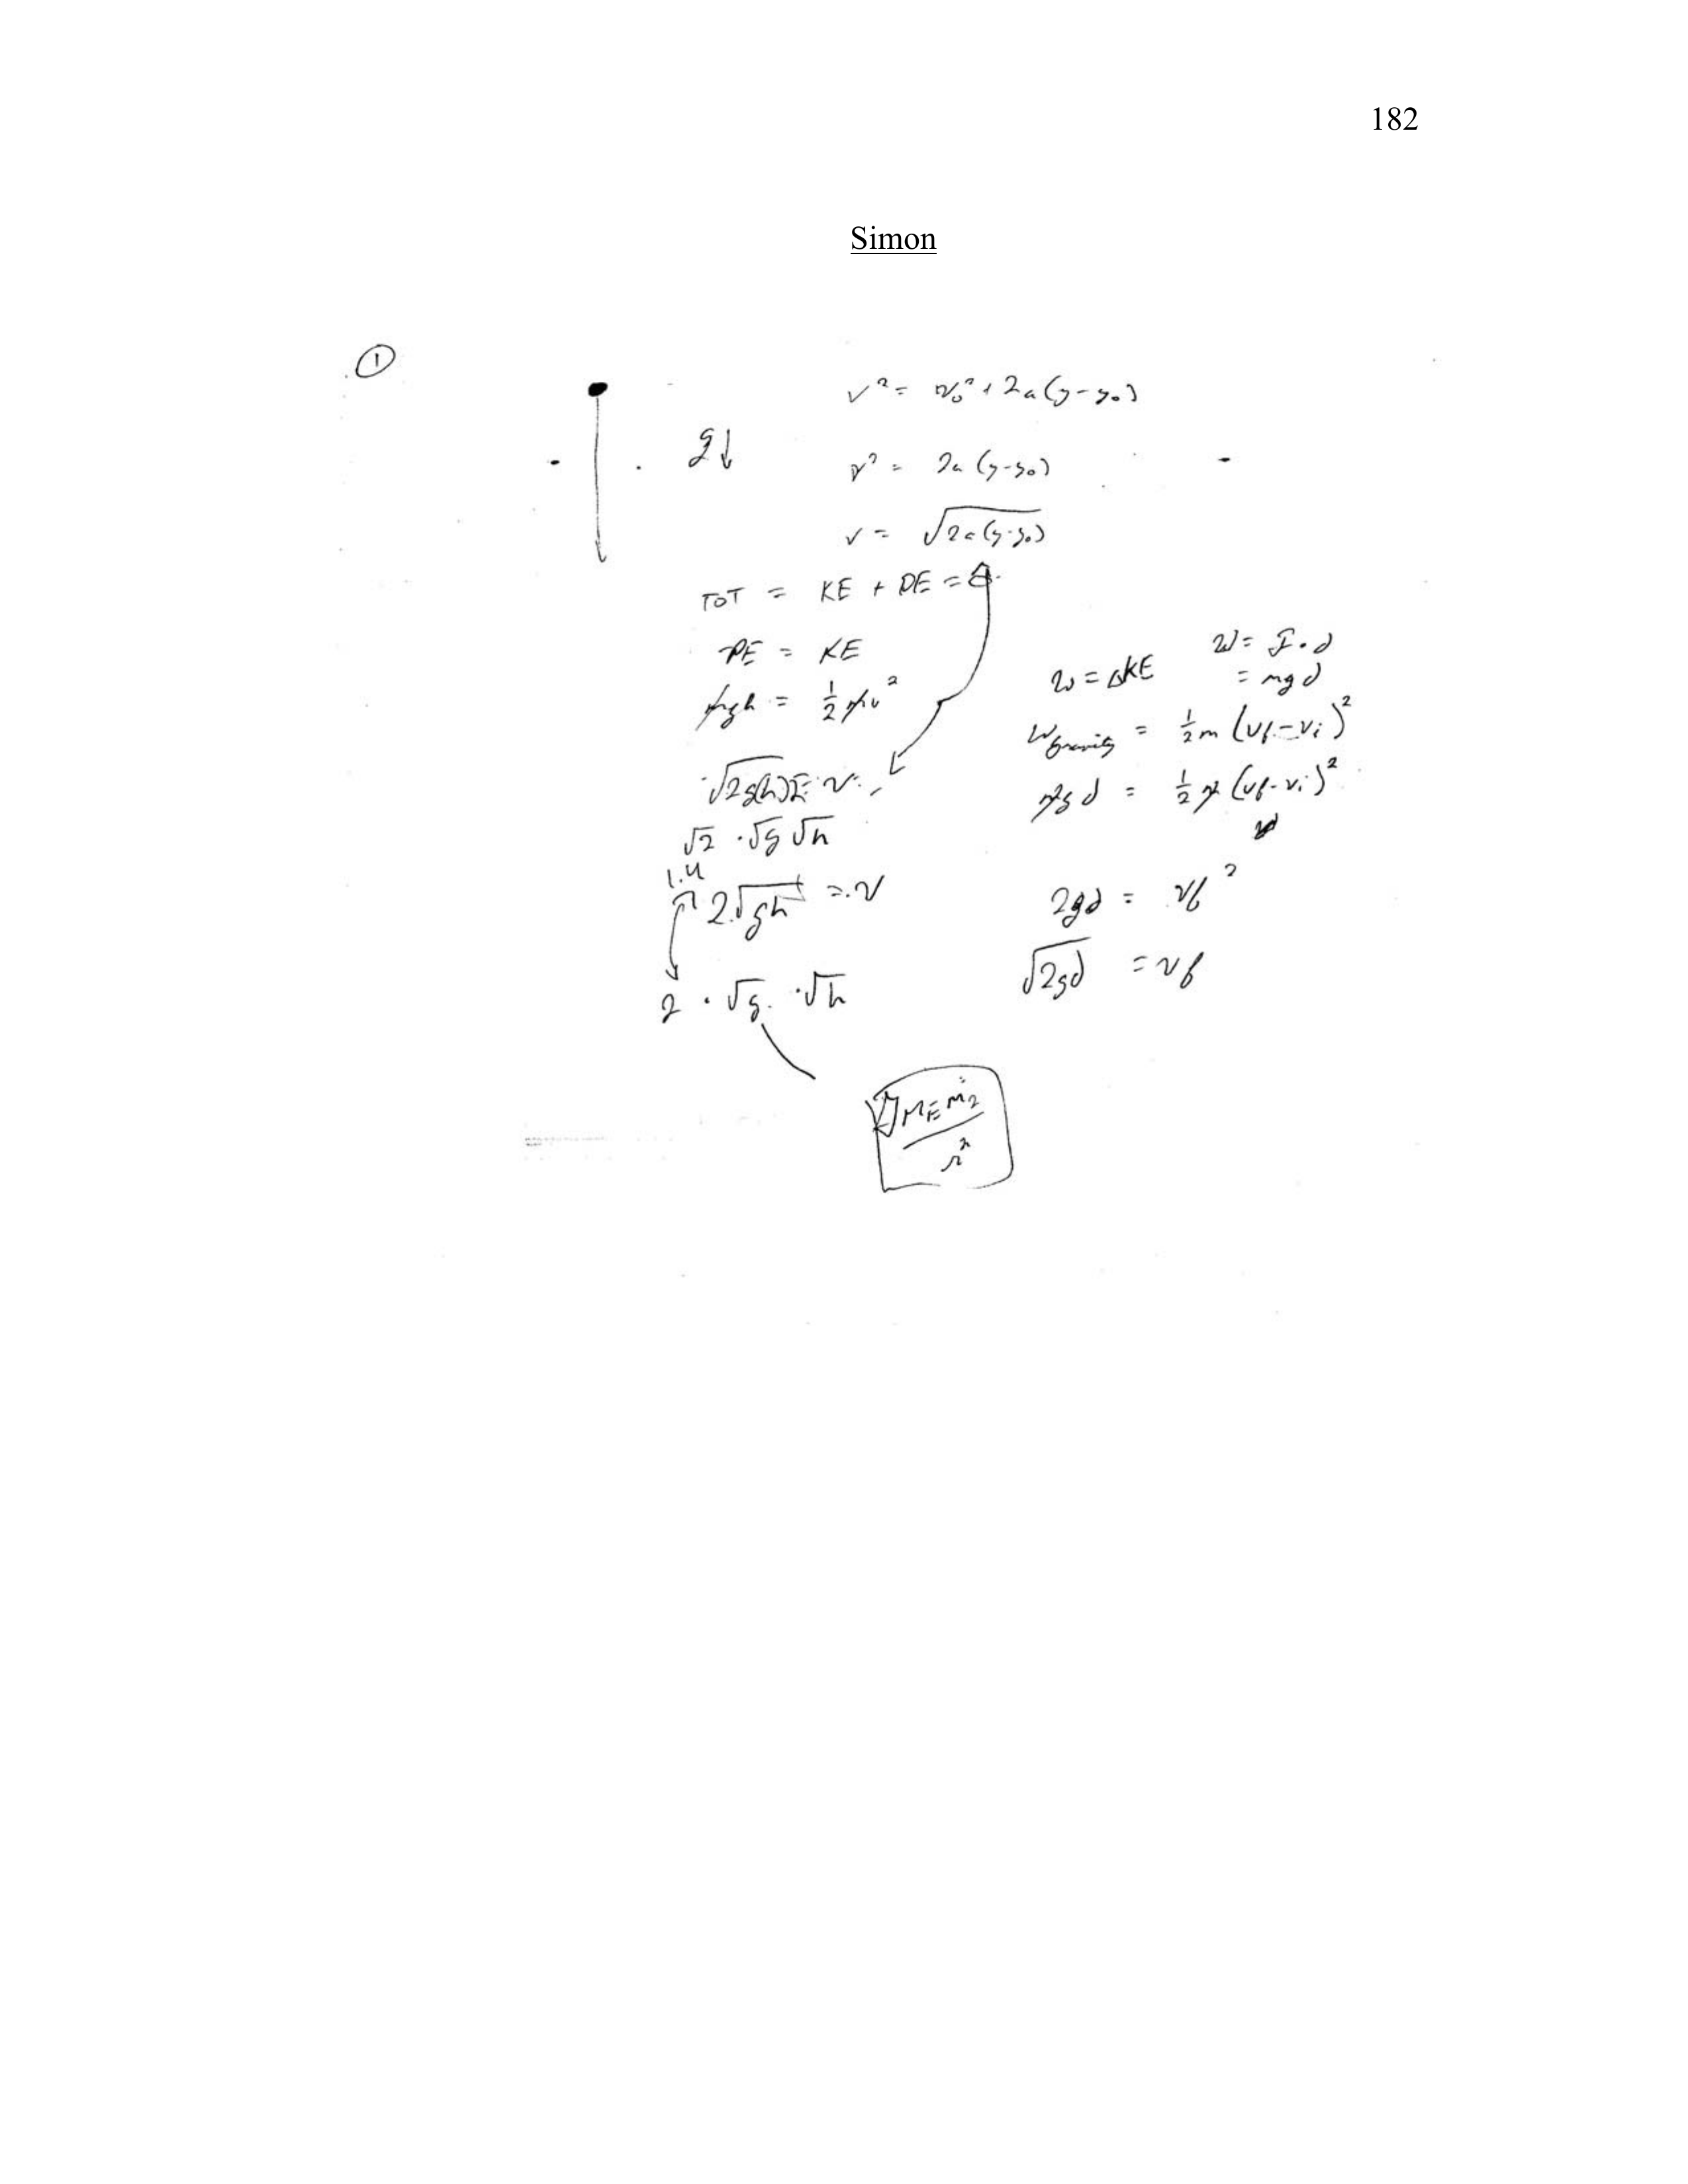 182
Simon
①
g↓
v² = v₀² + 2a(y-y₀)
v² = 2a(y-y₀)
v = √2a(y-y₀)
TOT = KE + PE =
-PE = KE
mgh = ½mv²
√2g(h) = v
√2 · √g √h
1.4
2√gh = v
2 · √g · √h
W = F · d
= mgd
W = ΔKE
Wgravity = ½m (vf - vi)²
mgd = ½m (vf - vi)²
2gd = vf²
√2gd = vf
GMEm2
r²